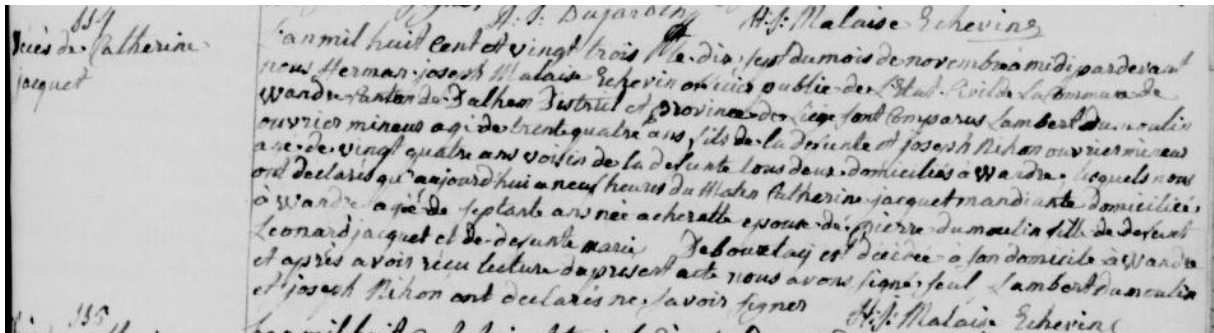 H. J. Dujardin H. J. Malaise Echevin
114
Decès de Catherine
jacquet
L'an mil huit Cent et vingt trois le dix sept du mois de novembre a midi pardevant
nous Herman joseph Malaise Echevin officier publie de L'Etat Civil de La Commune de
Wandre Canton de Dalhem District et province de Liége sont Comparus Lambert dumoulin
ouvrier mineur agé de trente quatre ans fils de la defunte et joseph Rihon ouvrier mineur
age de vingt quatre ans voisin de la defunte tous deux domiciliés à Wandre, lesquels nous
ont declarés qu'aujourd'hui a neuf heures du Matin Catherine jacquet mandiante domiciliée
à Wandre agée de septante ans née a cheratte epouse de pierre dumoulin fille de defunt
Leonard jacquet et de defunte marie Debourtay est décédée à son domicile à Wandre
et après avoir reçu lecture du present acte nous avons signé seul Lambert dumoulin
et joseph Rihon ont declarés ne savoir signer H. J. Malaise Echevin
115
L'an mil huit